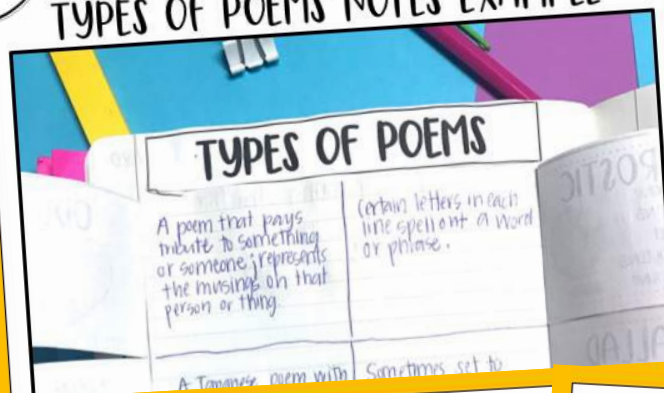 TYPES OF POEMS NOTES EXAMPLE
TYPES OF POEMS
A poem that pays
tribute to something
or someone; represents
the musings on that
person or thing.
Certain letters in each
line spell out a word
or phrase.
A Japanese poem with
Sometimes set to
ROSTIC